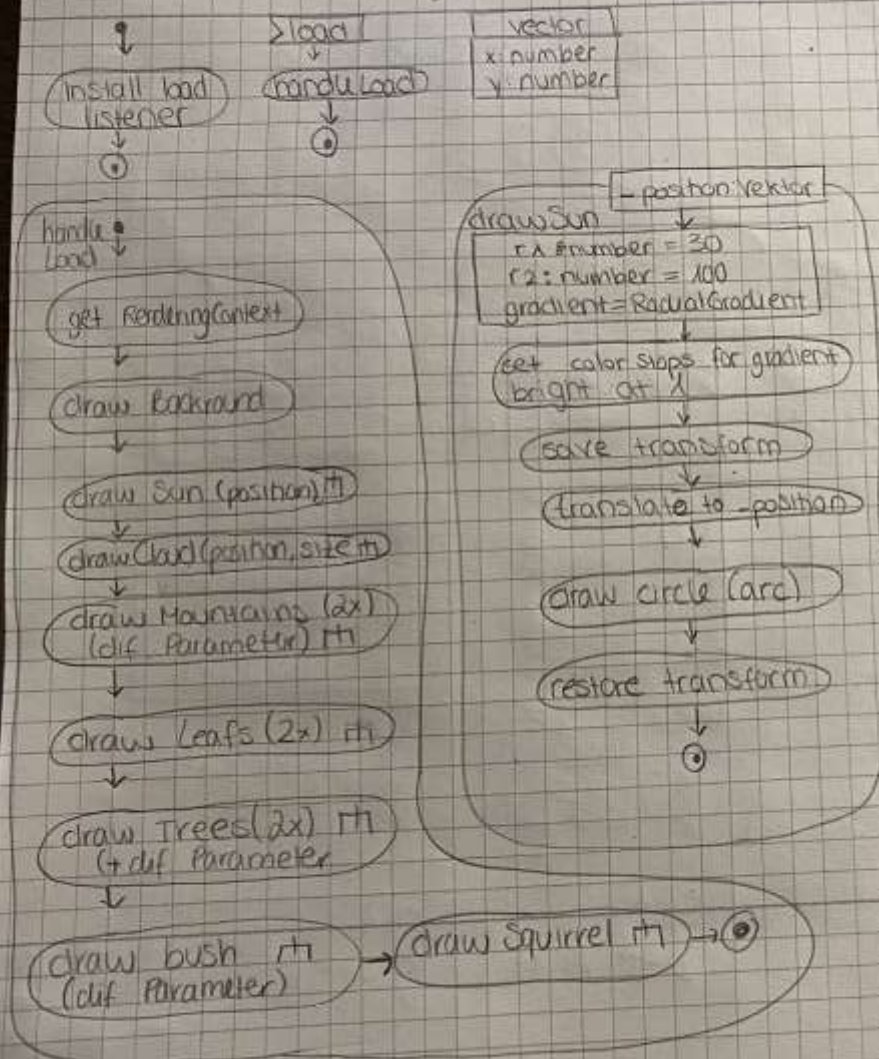 install load
listener
load
handleLoad
vector
x:number
y:number
handle
Load
get RenderingContext
draw Backround
draw Sun (position)
draw Cloud (position, size
draw Mountains (2x)
(dif Parameter)
draw Leafs (2x)
draw Trees (2x)
(+ dif Parameter
draw bush
(dif Parameter)
draw Squirrel
_position:Vektor
drawSun
r1:number = 30
r2: number = 100
gradient=RadialGradient
set color stops for gradient
bright at 1
save transform
translate to _position
draw circle (arc)
restore transform